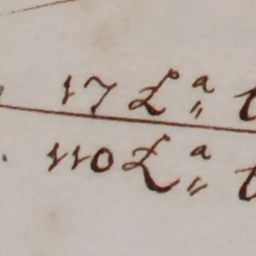 17 Lª t
110 Lª t